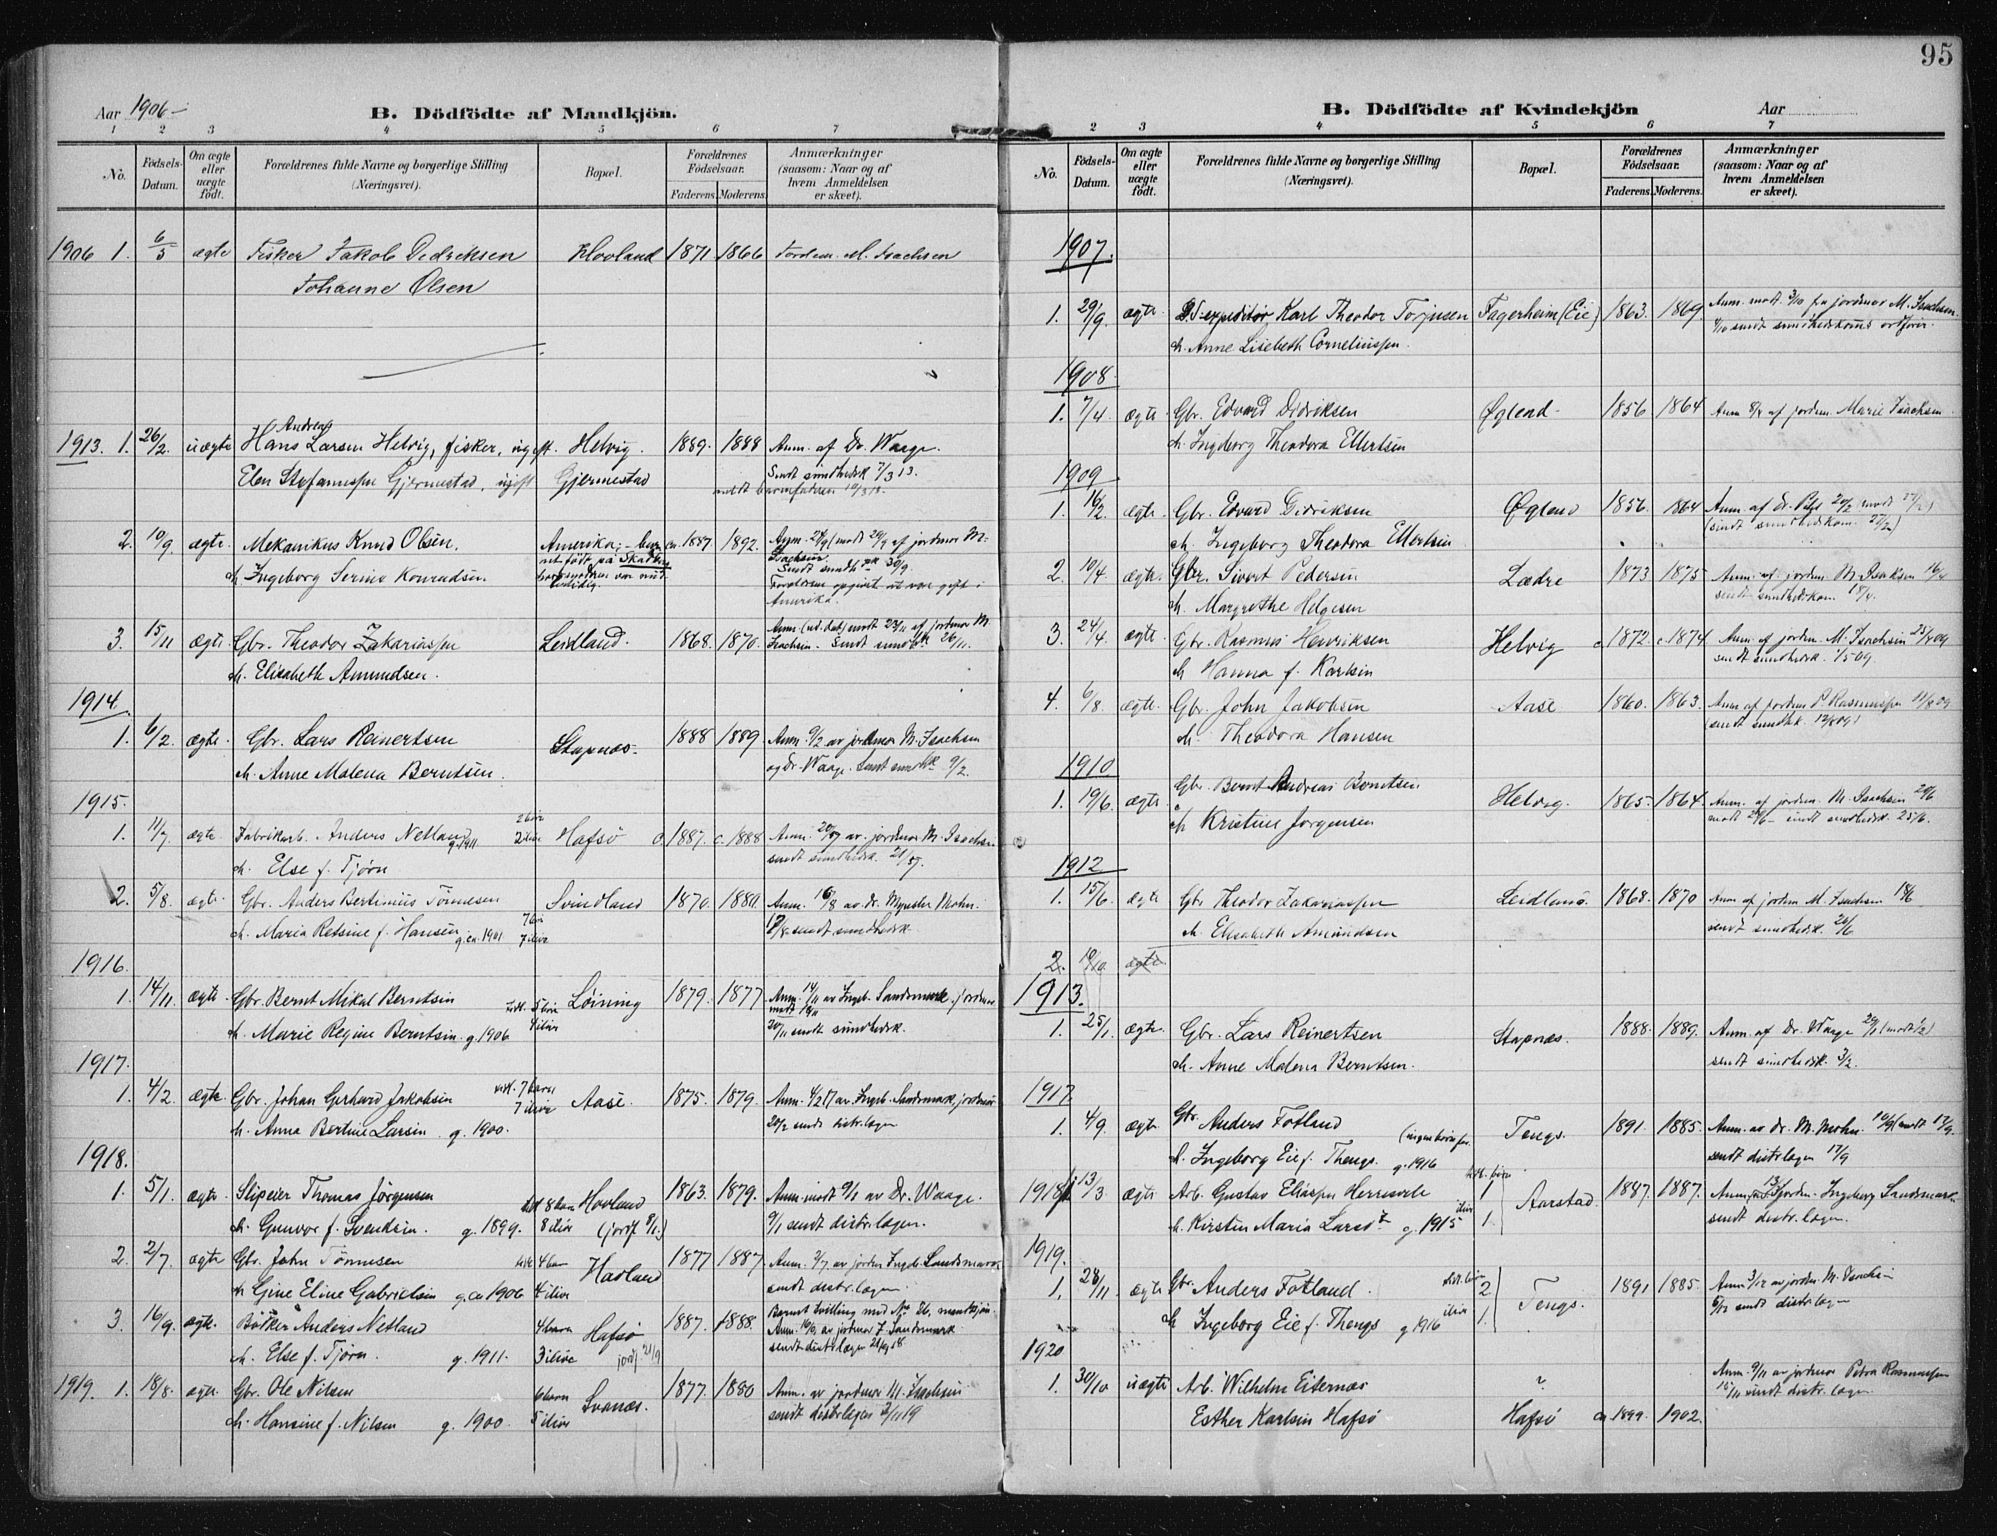 95
Aar 1906-
B. Dödfödte af Mandkjön.
1 2 3 4 5 6 7
No.
Födsels-Datum.
Om ægte eller uægte födt.
Forældrenes fulde Navne og borgerlige Stilling (Næringsvei).
Bopæl.
Forældrenes Födselsaar.
Faderens. Moderens.
Anmærkninger (saasom: Naar og af hvem Anmeldelsen er skeet).
1906 1. 6/5 ægte Fisker Jakob Didriksen Hovland 1871 1866 Jordem. M. Isachsen
Johanne Olsen
1913. 1. 26/2 uægte Hans Andreas Larsen Helvig, fisker, ugift. Helvig. 1889. 1888 Anm. af Dr. Waage.
Elen Stefannspn Gjermestad, ugift Gjermestad Sendt sundhedsk 7/3 13.
2. 10/9 ægte. Mekanikus Knud Olsen. Amerika, - ca. 1887 1892.
h. Ingeborg Serine Konradsen.
Forældrene opgivet at være gift i Amerika.
3. 15/11 ægte Gbr. Theodor Zakariasspn Leidland. 1868. 1870.
h. Elisabeth Amundsen.
1914.
1. 6/2 ægte. Gbr. Lars Reinertsen Stapnæs. 1888 1889 Anm. 9/2 av jordmor M. Isachsen
h. Anne Malena Berntsen. og Dr. Waage. Sendt sundhk 9/2.
1915.
1. 11/7 ægte Fabrikarb. Anders Netland g. 1911 2 ilive Hafsö c. 1887. c. 1888 Anm. 20/7 av jordmor M. Isachsen
h. Else f. Tjörn sendt sundhedsk. 21/7.
2. 5/8. ægte. Gbr. Anders Bertinius Tönnesen Svindland 1870. 1880. Anm. 16/8 av dr. Mynster Mohn.
h. Maria Retsine f. Hansen g. ca. 1901 7 ilive 17/8 sendt sundhedsk.
1916.
1. 14/11 ægte Gbr. Bernt Mikal Berntsen Löining 1879. 1877 Anm. 14/11 av Ingeb. Sandsmark, jordmor
h. Marie Regine Berntsen g. 1906 4 ilive 20/11 sendt sundhedsk.
1917.
1. 4/2. ægte Gbr. Johan Gerhard Jakobsen 7 barn 7 ilive Aase 1875. 1879. Anm. 4/2 17 av Ingeb. Sandsmark, jordmor
h. Anna Bertine Larsen g. 1900. 20/2 sendt distr.lægen
1918.
1. 5/1. ægte Slipeier Thomas Jörgensen 8 barn Hovland 1863. 1879. Anm. modt 9/1 av Dr. Waage.
h. Gunvor f. Svendsen g. 1899. 8 ilive (jordf. 9/1.) 9/1 sendt distr.lægen.
2. 2/7. ægte Gbr. John Tönnesen 4 barn Havland 1877 1887 Anm. 3/7 av jordm Ingeb. Sandsmark
h. Gine Eline Gabrielsen g. ca 1906 4 ilive sendt distr.lægen
3. 16/9. ægte. Bötker Anders Netland 4 barn Hafsö 1887. 1888. Barnet tvilling med No 26. mandkjön.
h. Else f. Tjörn. g. 1911. 3 ilive jordf. 21/9 sendt distr.lægen 21/9 18.
1919. 1. 18/8. ægte Gbr. Ole Nilsen 6 barn Svanæs. 1877. 1880 Anm. av jordmor M. Isachsen
h. Hansine f. Nilsen g. 1900. 5 ilive sendt distr.lægen 3/11 19
B. Dödfödte af Kvindekjön
Aar
2 3 4 5 6 7
No.
Födsels-Datum.
Om ægte eller uægte födt.
Forældrenes fulde Navne og borgerlige Stilling (Næringsvei).
Bopæl.
Forældrenes Födselsaar.
Faderens. Moderens.
Anmærkninger (saasom: Naar og af hvem Anmeldelsen er skeet).
1907.
1. 29/9. ægte D.S. expeditör Karl Theodor Torjusen Fagerheim (Eie) 1863. 1869. Anm. modt. 3/10 fra jordmor M. Isachsen.
h. Anne Lisebeth Corneliusspn.
1908.
1. 7/4. ægte. Gbr. Edvard Didriksen Øglend. 1856 1864 Anm 8/4 af jordem. Marie Isachsen.
h. Ingeborg Theodora Ellertsen
1909
1. 16/2. ægte. Gbr. Edvard Didriksen Øglend 1856. 1864 Anm. af Dr.
h. Ingeborg Theodora Ellertsen (sendt sundhedskom. 27/2)
2. 10/4. ægte. Gbr. Sivert Pedersen Lædre 1873 1875 Anm. af jordem M. Isaksen 16/4
h. Margrethe Helgesen sendt sundhedskom. 18/4.
3. 24/4. ægte Gbr. Rasmus Henriksen Helvig c. 1872. c. 1874 Anm. af jordem. M. Isachsen 25/4 09
h. Hanna f. Karlsen sendt sundhedsk. 1/5 09
4. 6/8. ægte. Gbr. John Jakobsen Aase 1860. 1863. Anm af jordem P. Rasmusspn 11/8 09
h. Theodora Hansen (sendt sundhk. 12/8 09)
1910
1. 19/6. ægte Gbr. Bernt Andreas Berntsen Helvig. 1865. 1864. Anm. af jordem. M. Isachsen 20/6
h. Kristine Jörgensen sendt sundhedsk. 25/6.
1912.
1. 15/6. ægte Gbr Theodor Zakariasspn Leidland. 1868. 1870 Anm af jordem M. Isachsen 18/6
h. Elisabeth Amundsen sendt sundhedsk. 21/6
2. 10/10. ægte
1913.
1. 25/1. ægte. Gbr. Lars Reinertsen Stapnæs. 1888. 1889. Anm. af Dr. Waage 29/1 (modt 1/2)
h. Anne Malena Berntsen. sendt sundhedsk. 3/2.
1917
1. 4/9. ægte Gbr. Anders Fotland Tengs. 1891. 1885. Anm. av dr. M. Mohn. 10/9 (modt 17/9.
h. Ingeborg Eie f. Thengs. g. 1916 sendt distr.lægen 17/9
1918 1. 13/3 ægte Arb. Gustav Eliasspn Herresvele 1 Aarstad. 1887. 1887. Anm. jordem. Ingeborg Sandsmark
h. Kirstin Maria Larsd. g. 1915 ilive 1. sendt distr.lægen.
1919.
1. 28/11 ægte Gbr. Anders Fotland. 2 Tengs. 1891 1885. Anm 3/12 av jordm. M. Isachsen
h. Ingeborg Eie f. Thengs g. 1916 ilive 1. 5/12 sendt distr.lægen
1920
1. 30/10 uægte Arb. Wilhelm Eiternæs ? Anm 9/11 av jordmor Petra Rasmussen
15/11 sendt distr.lægen
Esther Karlsen Hafsö Hafsö ca 1899. 1902.